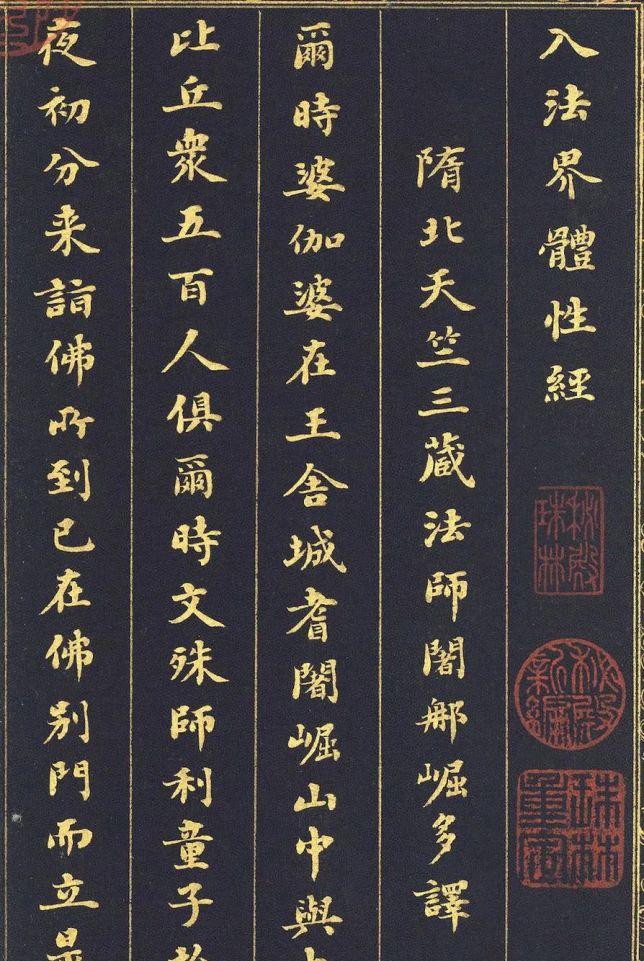 入法界體性經
隋北天竺三藏法師闍那崛多譯
爾時婆伽婆在王舍城耆闍崛山中與
比丘衆五百人俱爾時文殊師利童子
夜初分来詣佛所到已在佛別門而立
秘殿珠林
秘殿新編
珠林重定